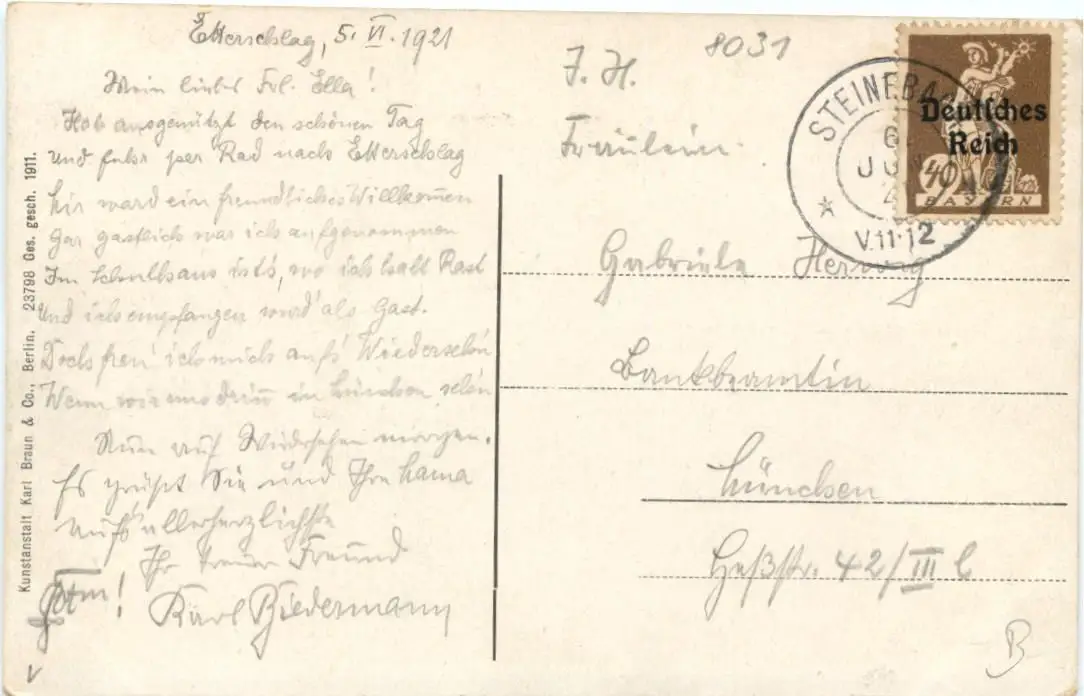 Etterschlag, 5. VI. 1921
Mein liebes Frl. Ella!
Hab ausgenützt den schönen Tag
und fuhr per Rad nach Etterschlag
hir ward ein freundliches Willkommen
Gar gastlich war ich aufgenommen
Im Schulhaus ist's, wo ich halt Rast
und ich empfangen wurd' als Gast.
Doch freu' ich mich aufs' Wiedersehn
Wenn wir uns drin̅ in München sehn
Nun auf Wiedersehen morgen.
Es grüßt Sie und Ihre Mama
aufs allerherzlichste
Ihr treuer Freund
Karl Biedermann
Kunstanstalt Karl Braun & Co., Berlin. 23798 Ges. gesch. 1911.
8031
Fräulein
Gabriele
Bankbeamtin
München
Heßstr. 42/III
B
STEINEBA
6
JUN
V.11-12
Deutsches
Reich
40
BAYERN